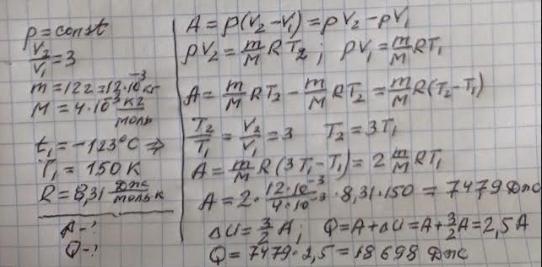 p = const
V₂/V₁ = 3
m = 12г = 12·10⁻³ кг
M = 4·10⁻³ кг/моль
t₁ = -123°C ⇒
T₁ = 150 K
R = 8,31 Дж/моль·К
A - ?
Q - ?
A = p(V₂-V₁) = pV₂ - pV₁
pV₂ = m/M RT₂ ; pV₁ = m/M RT₁
A = m/M RT₂ - m/M RT₂ = m/M R(T₂-T₁)
T₂/T₁ = V₂/V₁ = 3 T₂ = 3T₁
A = m/M R(3T₁-T₁) = 2 m/M RT₁
A = 2 · 12·10⁻³/4·10⁻³ · 8,31 · 150 = 7479 Дж
ΔU = 3/2 A ; Q = A + ΔU = A + 3/2 A = 2,5 A
Q = 7479 · 2,5 = 18698 Дж